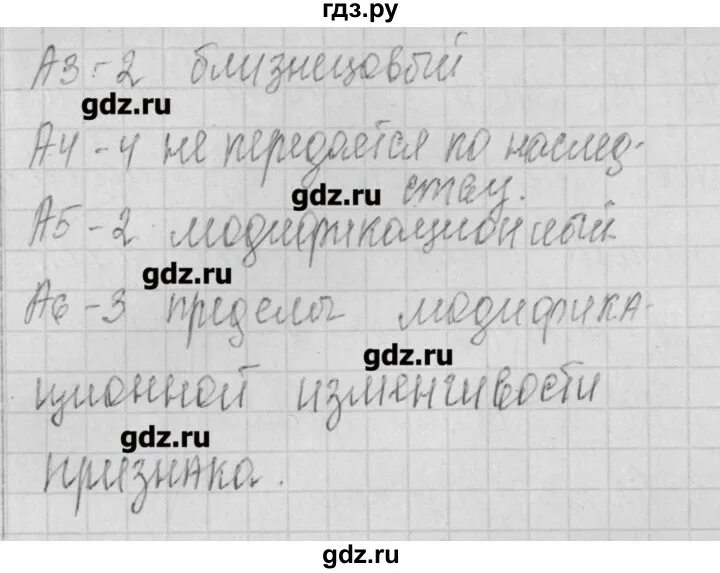 гдз.ру
А3-2 близнецовый
gdz.ru
А4-4 не передается по наслед-
gdz.ru ству.
А5-2 модификационный
gdz.ru
А6-3 пределы модифика-
gdz.ru
ционной изменчивости
gdz.ru
признака.
gdz.ru